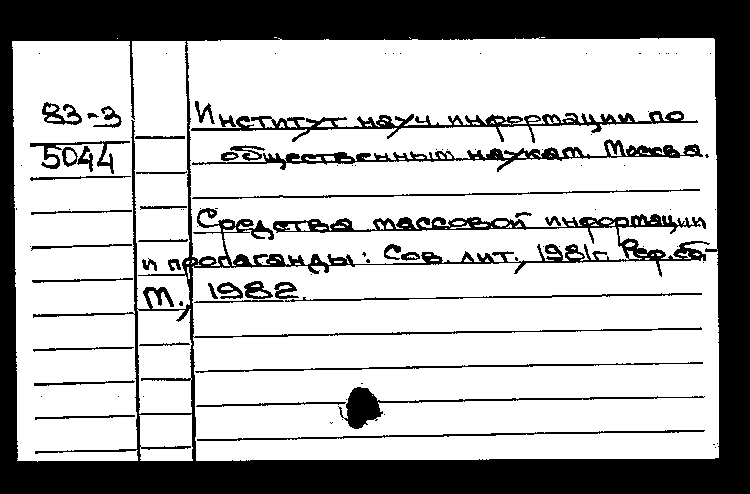 83-3
5044
Институт науч. информации по
общественным наукам. Москва.
Средства массовой информации
и пропаганды: Сов. лит., 1981г. Реф. сб-
М., 1982.